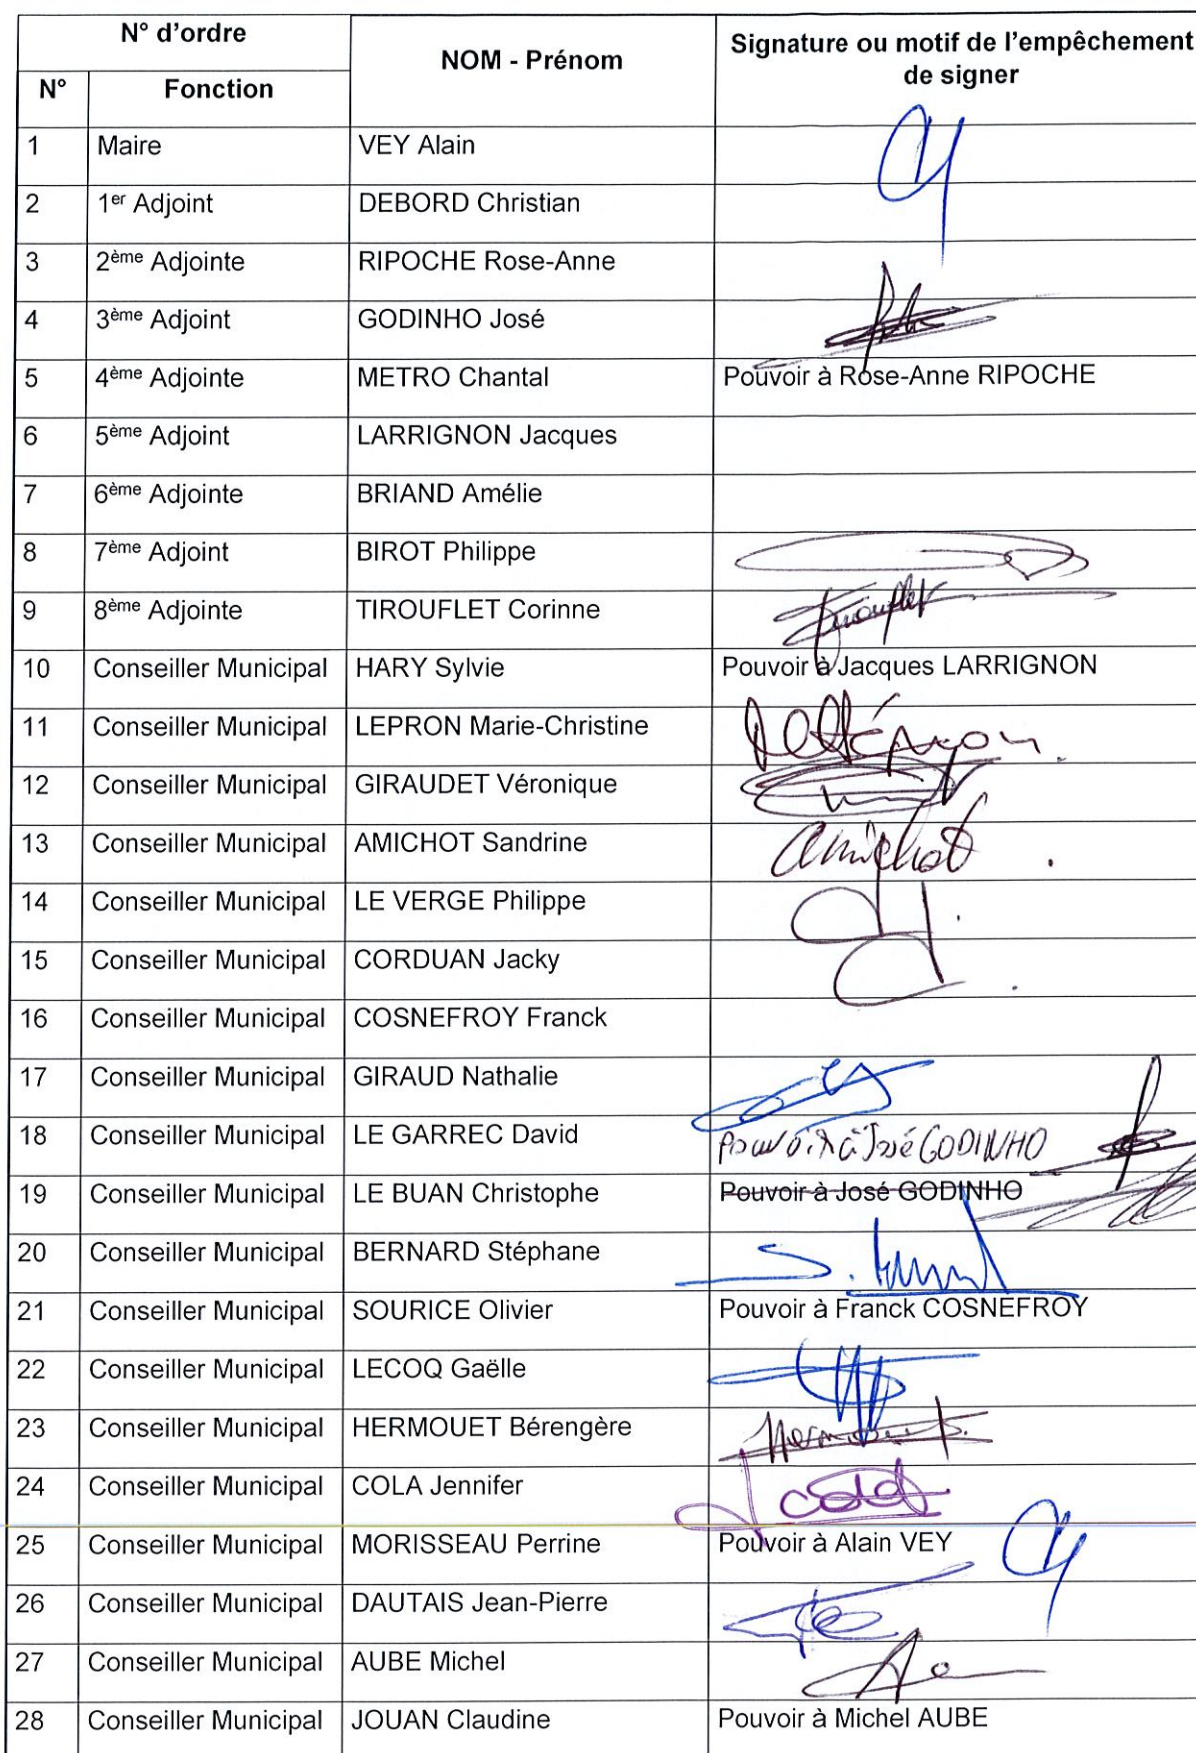 N° d'ordre
NOM - Prénom
Signature ou motif de l'empêchement
de signer
N° Fonction
1 Maire VEY Alain
2 1er Adjoint DEBORD Christian
3 2ème Adjointe RIPOCHE Rose-Anne
4 3ème Adjoint GODINHO José
5 4ème Adjointe METRO Chantal Pouvoir à Rose-Anne RIPOCHE
6 5ème Adjoint LARRIGNON Jacques
7 6ème Adjointe BRIAND Amélie
8 7ème Adjoint BIROT Philippe
9 8ème Adjointe TIROUFLET Corinne Tirouflet
10 Conseiller Municipal HARY Sylvie Pouvoir à Jacques LARRIGNON
11 Conseiller Municipal LEPRON Marie-Christine
12 Conseiller Municipal GIRAUDET Véronique
13 Conseiller Municipal AMICHOT Sandrine Amichot
14 Conseiller Municipal LE VERGE Philippe
15 Conseiller Municipal CORDUAN Jacky
16 Conseiller Municipal COSNEFROY Franck
17 Conseiller Municipal GIRAUD Nathalie
18 Conseiller Municipal LE GARREC David Pouvoir à José GODINHO
19 Conseiller Municipal LE BUAN Christophe Pouvoir à José GODINHO
20 Conseiller Municipal BERNARD Stéphane
21 Conseiller Municipal SOURICE Olivier Pouvoir à Franck COSNEFROY
22 Conseiller Municipal LECOQ Gaëlle
23 Conseiller Municipal HERMOUET Bérengère Hermouet
24 Conseiller Municipal COLA Jennifer
25 Conseiller Municipal MORISSEAU Perrine Pouvoir à Alain VEY
26 Conseiller Municipal DAUTAIS Jean-Pierre
27 Conseiller Municipal AUBE Michel
28 Conseiller Municipal JOUAN Claudine Pouvoir à Michel AUBE